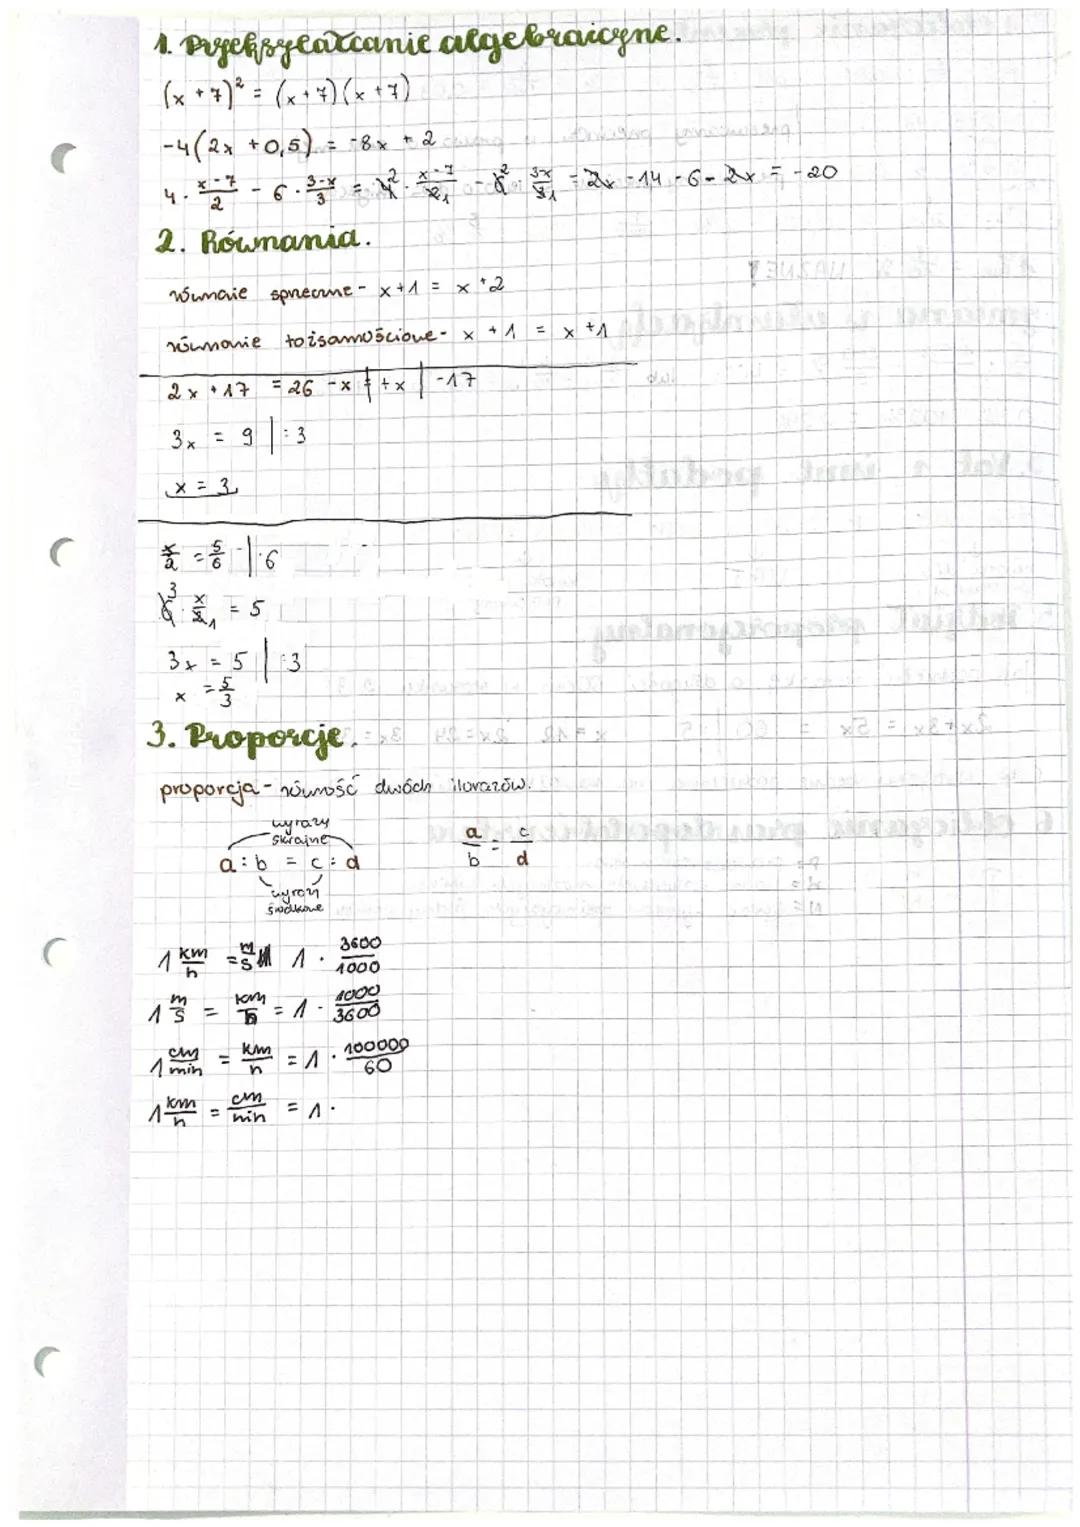 1. Przekształcanie algebraiczne.
(x + 7)² = (x + 7)(x + 7)
-4(2x + 0,5) = -8x + 2
4 · x-7/2 - 6 · 3-x/3 = 4² · x-7/2₁ - 6² · 3-x/3₁ = 2x - 14 - 6 - 2x = -20
2. Równania.
równaie sprzeczne - x + 1 = x + 2
równanie tożsamościowe - x + 1 = x + 1
2x + 17 = 26 - x | + x | - 17
3x = 9 | : 3
x = 3
x/2 = 5/6 | · 6
6³ · x/2₁ = 5
3x = 5 | : 3
x = 5/3
3. Proporcje.
proporcja - równość dwóch ilorazów.
wyrazy
skrajne
a : b = c : d
wyrazy
środkowe
a/b = c/d
1 km/h = m/s 1 · 3600/1000
1 m/s = km/h = 1 · 1000/3600
1 cm/min = km/h = 1 · 100000/60
1 km/h = cm/min = 1 ·